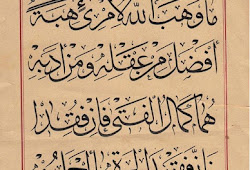 مَا وَهَبَ اللهُ لِامْرِئٍ هِبَةً
أَفْضَلَ مِنْ عَقْلِهِ وَمِنْ أَدَبِهِ
هُمَا كَمَالُ الفَتَى فَإِنْ فُقِدَا